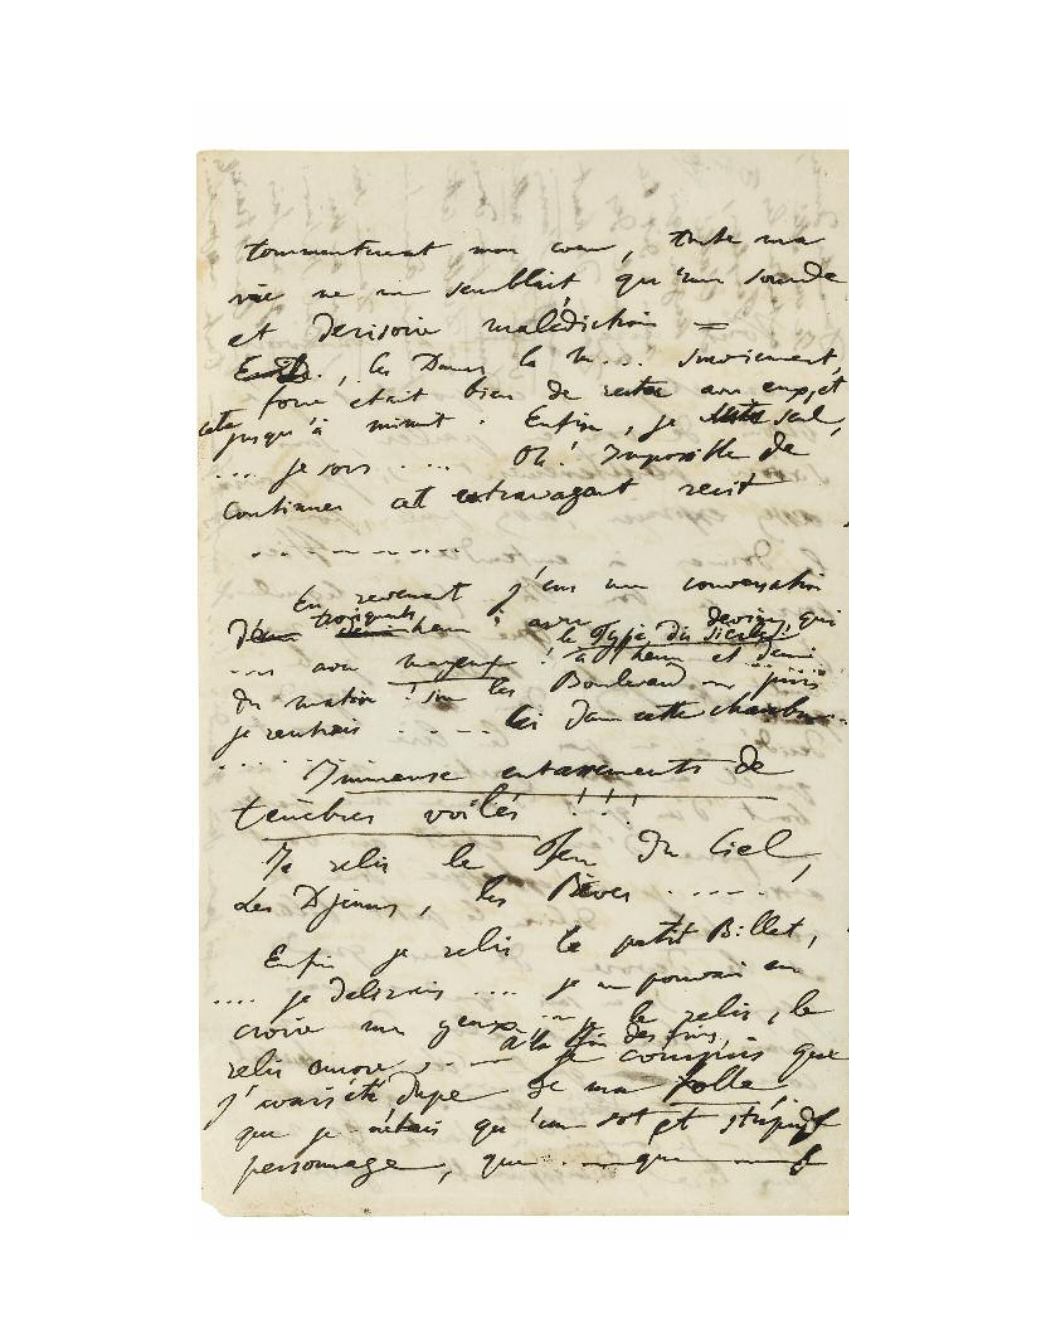 tourmenterent mon coeur, toute ma
vie ne me semblait qu'une sourde
et derisoire malédiction =
les Dames la M... survinrent,
force etait bien de rester avec eux, et
cela jusqu'à minuit. Enfin, je seul,
... je sors .... Oh! Impossible de
continuer cet extravagant recit
..........
En revenant j'eus une conversation
d'une trois quarts demi heure avec qui
le Type du siecle,
... avec ! à heure et demi
du matin ! sur les Boulevard — puis
je rentrais ..... Ici dans cette chambre...
......
Immense entassements de
tenèbres voilés !!!
Je relis le Feu du Ciel,
Les Djinns, les Rêves .....
Enfin je relis le petit Billet,
.... je delirais .... je ne pouvais en
croire mes yeux ... je le relis, le
relis encore . . — à la fin des fins, je compris que
j'avais été dupe de ma folle,
que je n'étais qu'un sot et stupide
personnage, que . — que —